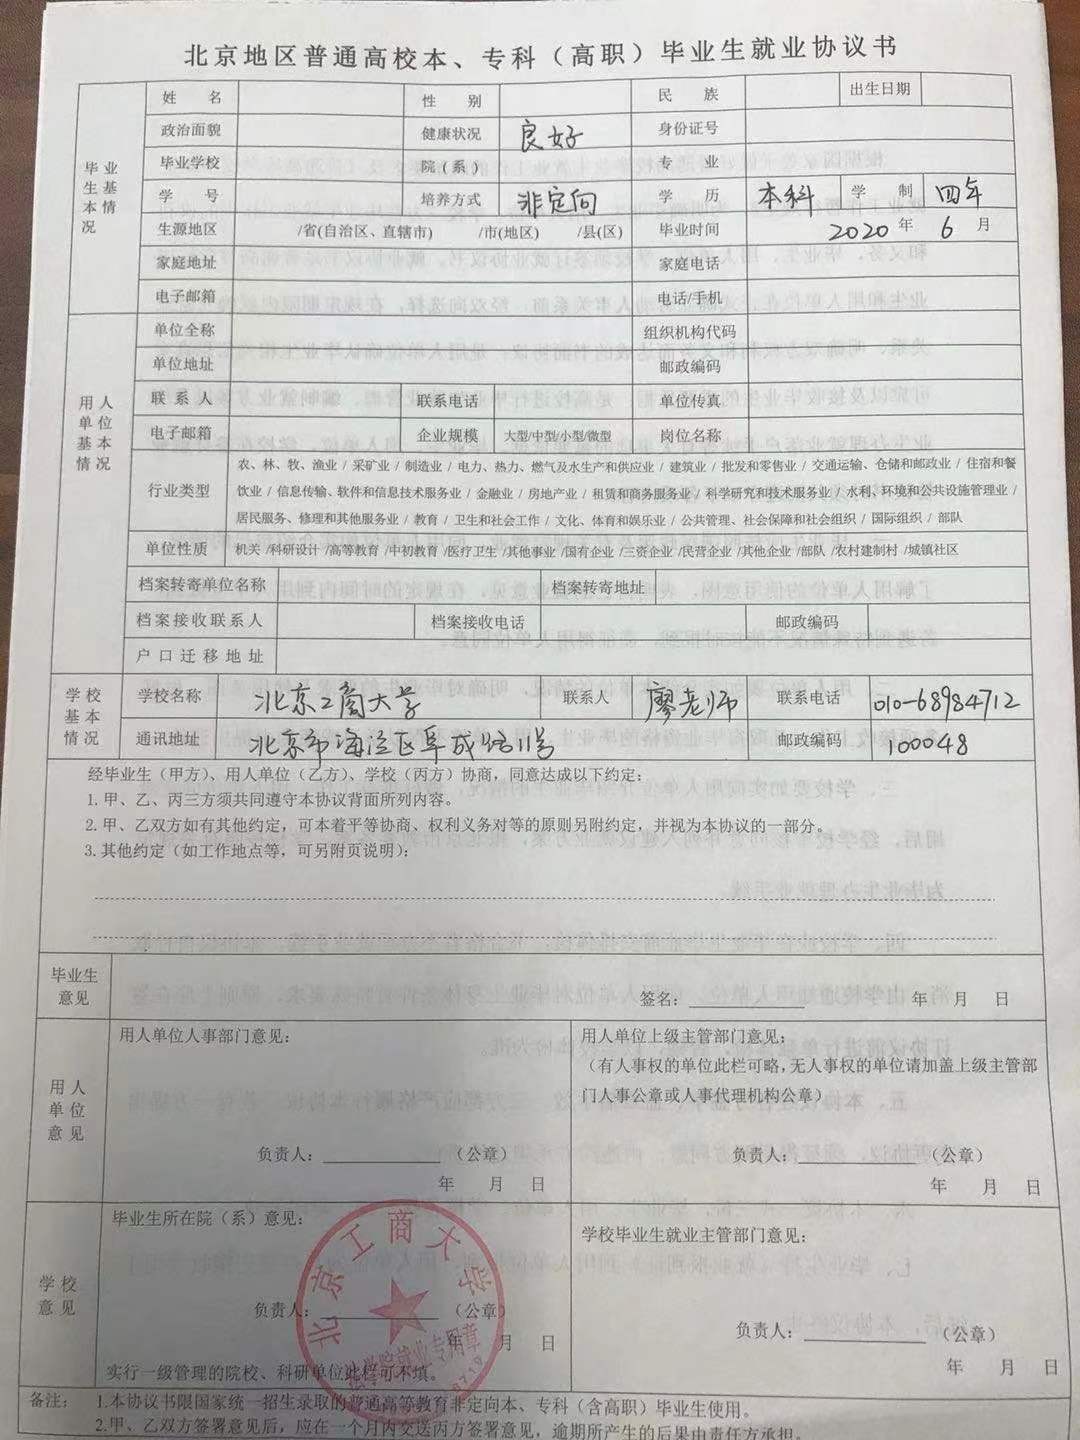 北京地区普通高校本、专科（高职）毕业生就业协议书
毕业生基本情况
姓 名 性 别 民 族 出生日期
政治面貌 健康状况 良好 身份证号
毕业学校 院（系） 专 业
学 号 培养方式 非定向 学 历 本科 学 制 四年
生源地区 /省(自治区、直辖市) /市(地区) /县(区) 毕业时间 2020 年 6 月
家庭地址 家庭电话
电子邮箱 电话/手机
用人单位基本情况
单位全称 组织机构代码
单位地址 邮政编码
联系人 联系电话 单位传真
电子邮箱 企业规模 大型/中型/小型/微型 岗位名称
行业类型
农、林、牧、渔业 / 采矿业 / 制造业 / 电力、热力、燃气及水生产和供应业 / 建筑业 / 批发和零售业 / 交通运输、仓储和邮政业 / 住宿和餐
饮业 / 信息传输、软件和信息技术服务业 / 金融业 / 房地产业 / 租赁和商务服务业 / 科学研究和技术服务业 / 水利、环境和公共设施管理业 /
居民服务、修理和其他服务业 / 教育 / 卫生和社会工作 / 文化、体育和娱乐业 / 公共管理、社会保障和社会组织 / 国际组织 / 部队
单位性质 机关 /科研设计 /高等教育 /中初教育 /医疗卫生 /其他事业 /国有企业 /三资企业 /民营企业 /其他企业 /部队 /农村建制村 /城镇社区
档案转寄单位名称 档案转寄地址
档案接收联系人 档案接收电话 邮政编码
户口迁移地址
学校基本情况
学校名称 北京工商大学 联系人 廖老师 联系电话 010-68984712
通讯地址 北京市海淀区阜成路11号 邮政编码 100048
经毕业生（甲方）、用人单位（乙方）、学校（丙方）协商，同意达成以下约定：
1. 甲、乙、丙三方须共同遵守本协议背面所列内容。
2. 甲、乙双方如有其他约定，可本着平等协商、权利义务对等的原则另附约定，并视为本协议的一部分。
3. 其他约定（如工作地点等，可另附页说明）：
毕业生意见
签名： 年 月 日
用人单位意见
用人单位人事部门意见：
负责人： （公章）
年 月 日
用人单位上级主管部门意见：
（有人事权的单位此栏可略，无人事权的单位请加盖上级主管部
门人事公章或人事代理机构公章）
负责人： （公章）
年 月 日
学校意见
毕业生所在院（系）意见：
负责人： （公章）
年 月 日
实行一级管理的院校、科研单位此栏可不填。
北京工商大学
就业专用章
学校毕业生就业主管部门意见：
负责人： （公章）
年 月 日
备注：
1.本协议书限国家统一招生录取的普通高等教育非定向本、专科（含高职）毕业生使用。
2.甲、乙双方签署意见后，应在一个月内交送丙方签署意见，逾期所产生的后果由责任方承担。